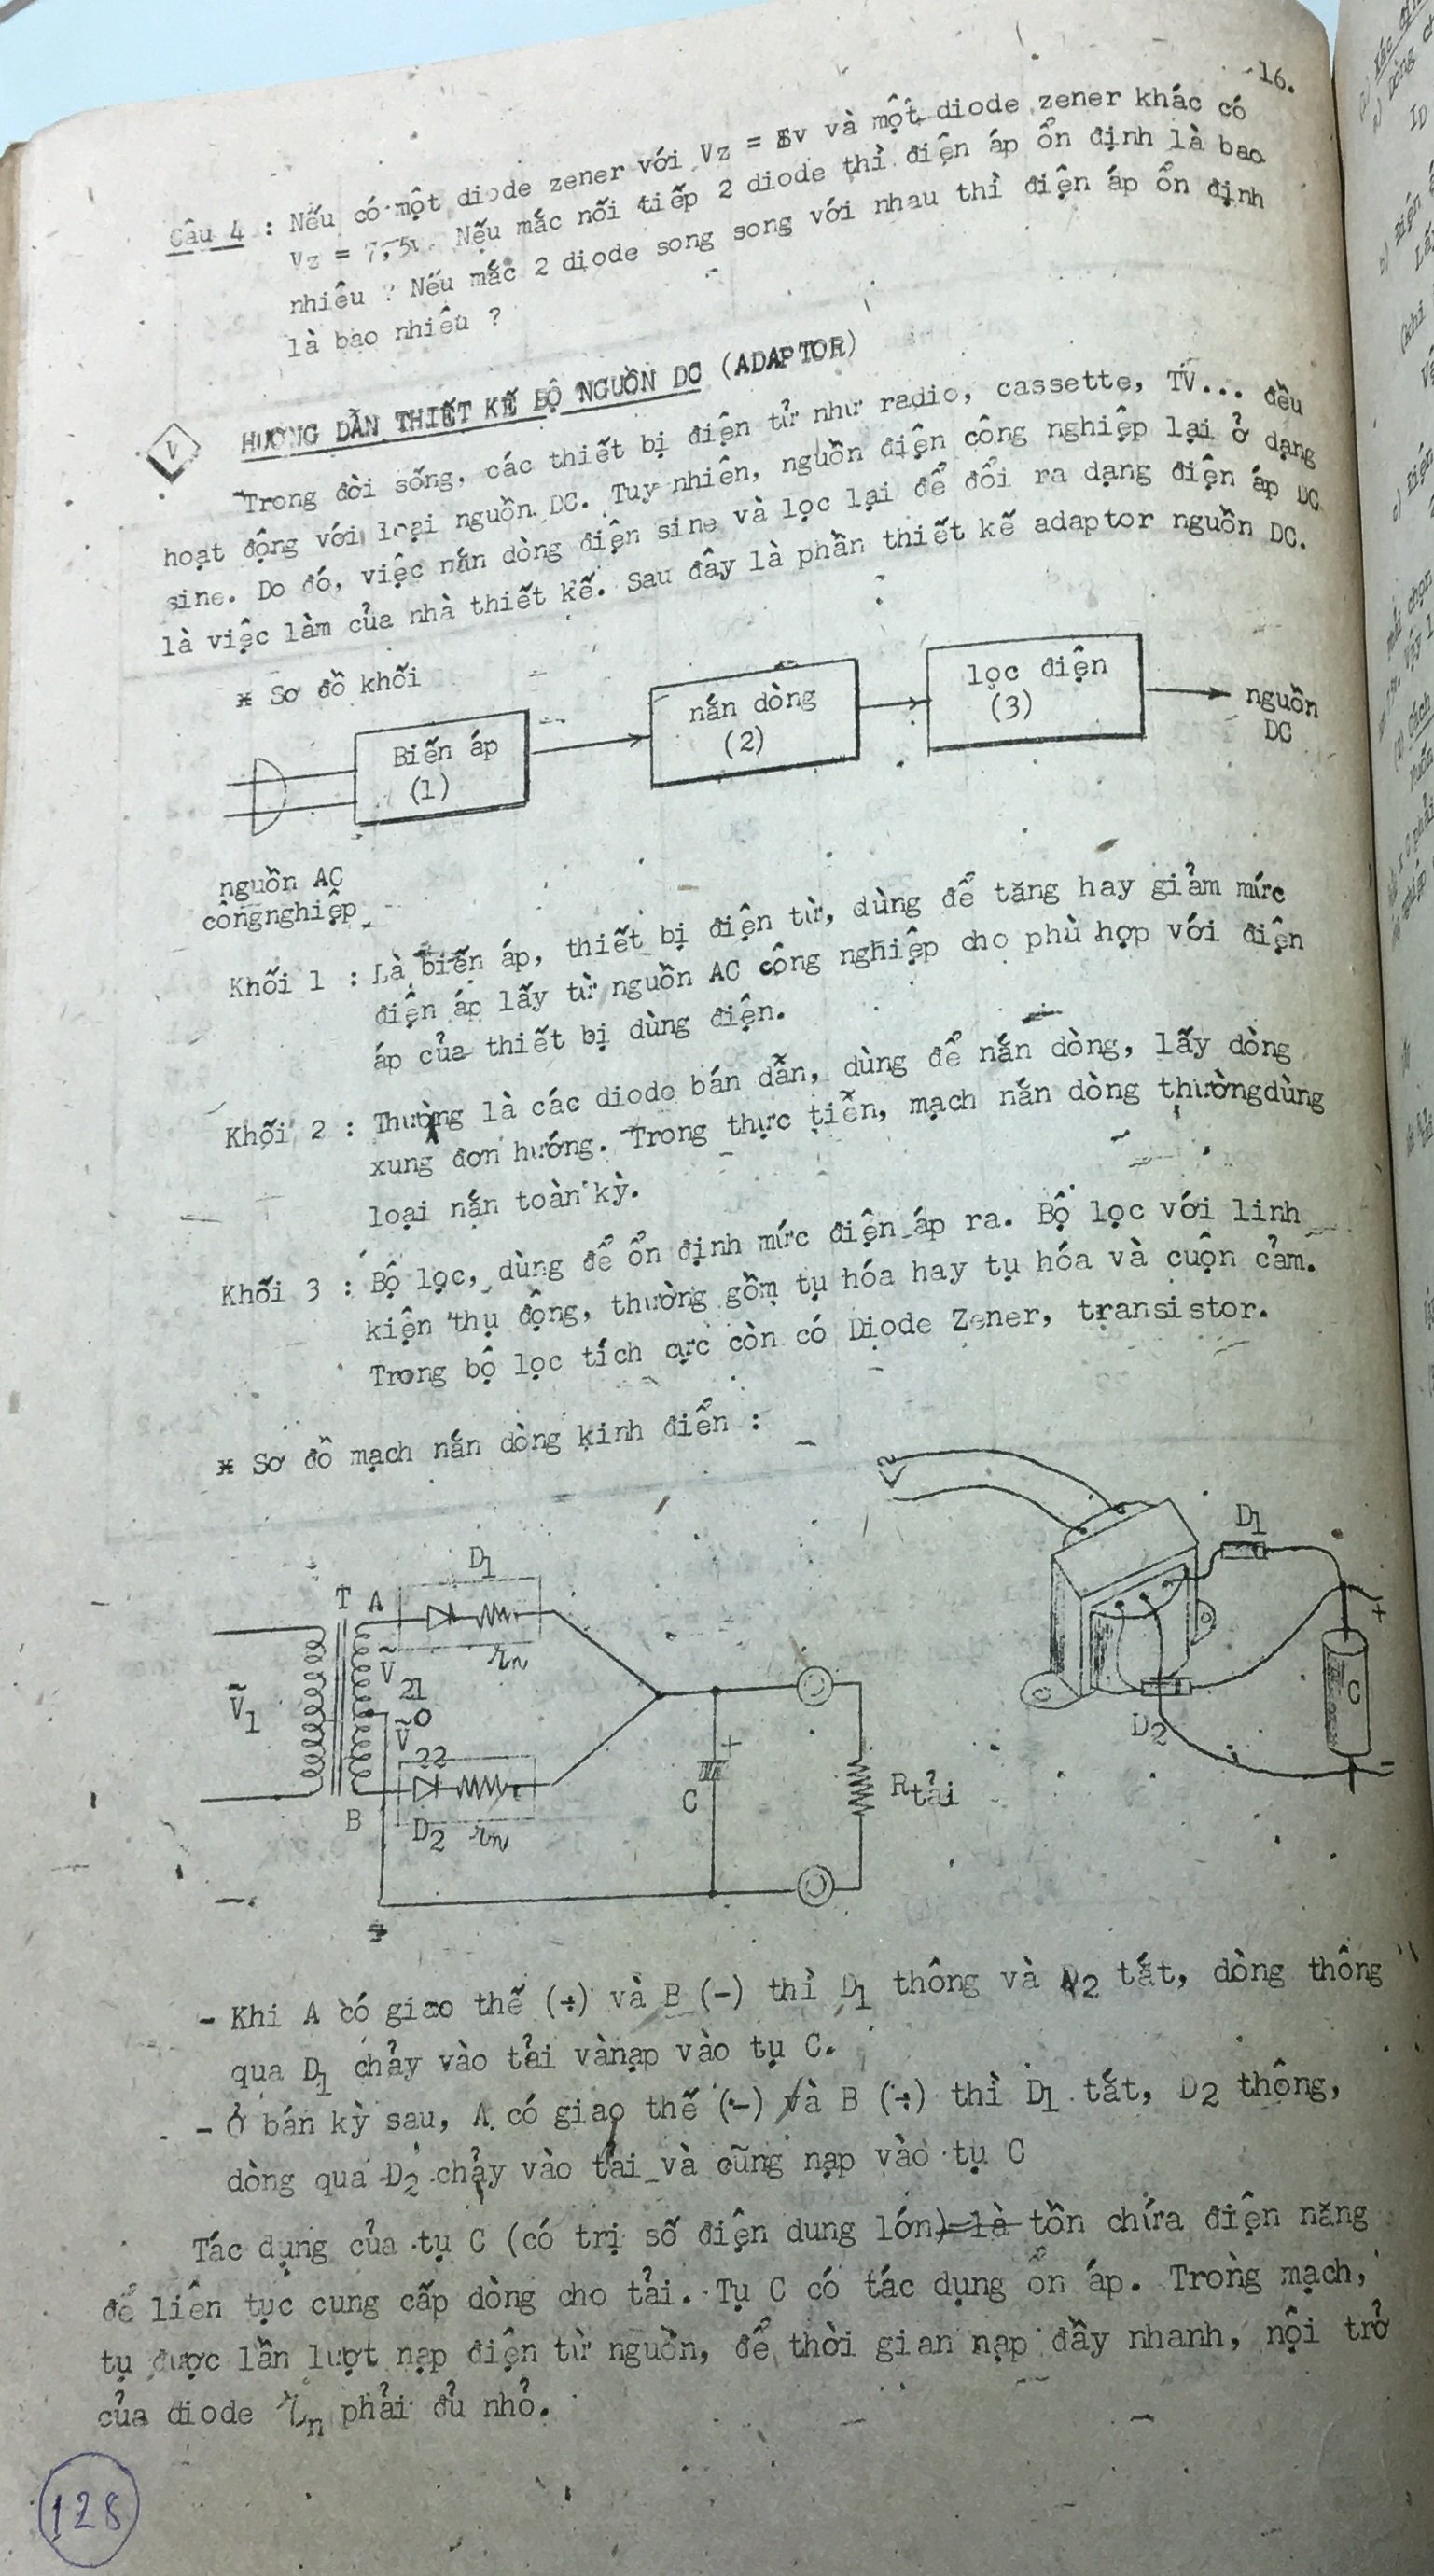 16.
Câu 4 : Nếu có một diode zener với Vz = 5v và một diode zener khác có
Vz = 7,5v. Nếu mắc nối tiếp 2 diode thì điện áp ổn định là bao
nhiêu ? Nếu mắc 2 diode song song với nhau thì điện áp ổn định
là bao nhiêu ?
V HƯỚNG DẪN THIẾT KẾ BỘ NGUỒN DC (ADAPTOR)
Trong đời sống, các thiết bị điện tử như radio, cassette, TV... đều
hoạt động với loại nguồn DC. Tuy nhiên, nguồn điện công nghiệp lại ở dạng
sine. Do đó, việc nắn dòng điện sine và lọc lại để đổi ra dạng điện áp DC
là việc làm của nhà thiết kế. Sau đây là phần thiết kế adaptor nguồn DC.
* Sơ đồ khối
Biến áp
(1)
nắn dòng
(2)
lọc điện
(3)
nguồn
DC
nguồn AC
côngnghiệp
Khối 1 : Là biến áp, thiết bị điện từ, dùng để tăng hay giảm mức
điện áp lấy từ nguồn AC công nghiệp cho phù hợp với điện
áp của thiết bị dùng điện.
Khối 2 : Thường là các diode bán dẫn, dùng để nắn dòng, lấy dòng
xung đơn hướng. Trong thực tiễn, mạch nắn dòng thườngdùng
loại nắn toàn kỳ.
Khối 3 : Bộ lọc, dùng để ổn định mức điện áp ra. Bộ lọc với linh
kiện thụ động, thường gồm tụ hóa hay tụ hóa và cuộn cảm.
Trong bộ lọc tích cực còn có Diode Zener, transistor.
* Sơ đồ mạch nắn dòng kinh điển :
D1
T A
rn
Ṽ1
Ṽ
21
0
Ṽ
22
B
D2 rn
C
+
Rtải
D1
D2
C
+
-
- Khi A có giao thế (+) và B (-) thì D1 thông và D2 tắt, dòng thông
qua D1 chảy vào tải vànạp vào tụ C.
- Ở bán kỳ sau, A có giao thế (-) và B (+) thì D1 tắt, D2 thông,
dòng qua D2 chảy vào tải và cũng nạp vào tụ C
Tác dụng của tụ C (có trị số điện dung lớn) là tồn chứa điện năng
để liên tục cung cấp dòng cho tải. Tụ C có tác dụng ổn áp. Trong mạch,
tụ được lần lượt nạp điện từ nguồn, để thời gian nạp đầy nhanh, nội trở
của diode rn phải đủ nhỏ.
128